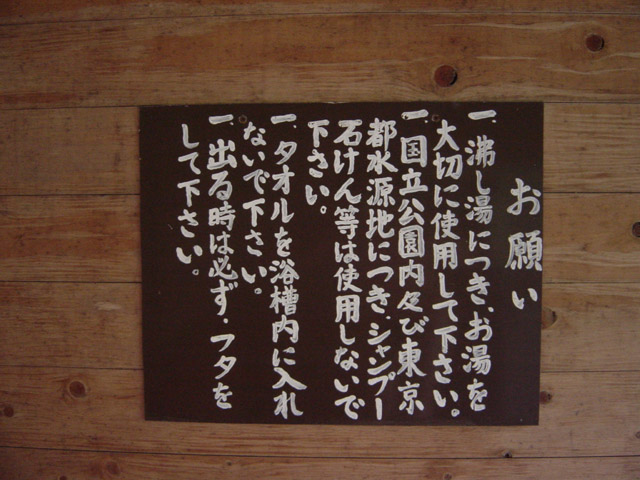 お願い
一、沸し湯につき、お湯を
大切に使用して下さい。
一、国立公園内及び東京
都水源地につき、シャンプー
石けん等は使用しないで
下さい。
一、タオルを浴槽内に入れ
ないで下さい。
一、出る時は必ず、フタを
して下さい。